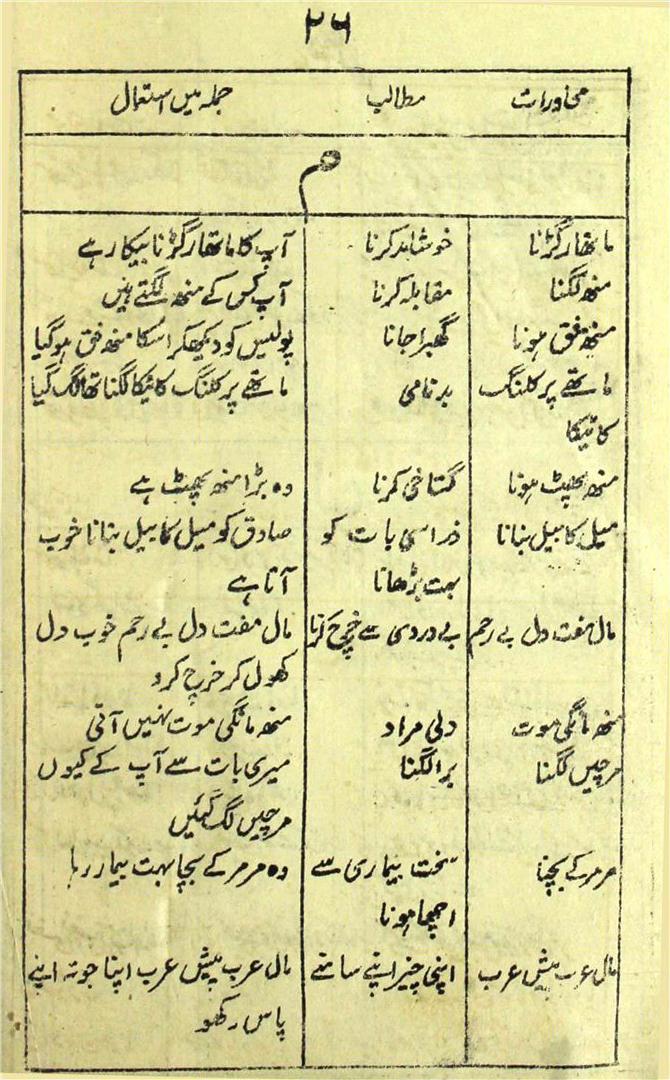 ۲۶
محاورات	مطالب	جملہ میں استعمال
م
ماتھا رگڑنا	خوشامد کرنا	آپ کا ماتھا رگڑنا بیکار ہے
منھ لگنا	مقابلہ کرنا	آپ کس کے منھ لگتے ہیں
منھ فق ہونا	گھبرا جانا	پولیس کو دیکھکر اسکا منھ فق ہوگیا
ماتھے پر کلنگ	بدنامی	ماتھے پر کلنگ کا ٹیکا لگنا تھا لگ گیا
کا ٹیکا
منھ پھٹ ہونا	گستاخی کرنا	وہ بڑا منھ پھٹ ہے
میل کا بیل بنانا	ذراسی بات کو	صادق کو میل کا بیل بنانا خوب
بہت بڑھانا	آتا ہے
مال مفت دل بے رحم	بے دردی سے خرچ کرنا	مال مفت دل بے رحم خوب دل
کھول کر خرچ کرو
منھ مانگی موت	دلی مراد	منھ مانگی موت نہیں آتی
مرچیں لگنا	برا لگنا	میری بات سے آپ کے کیوں
مرچیں لگ گئیں
مرمر کے بچنا	سخت بیماری سے	وہ مرمر کے بچا بہت بیمار رہا
اچھا ہونا
مال عرب پیش عرب	اپنی چیز اپنے سامنے	مال عرب پیش عرب اپنا جوتہ اپنے
پاس رکھو